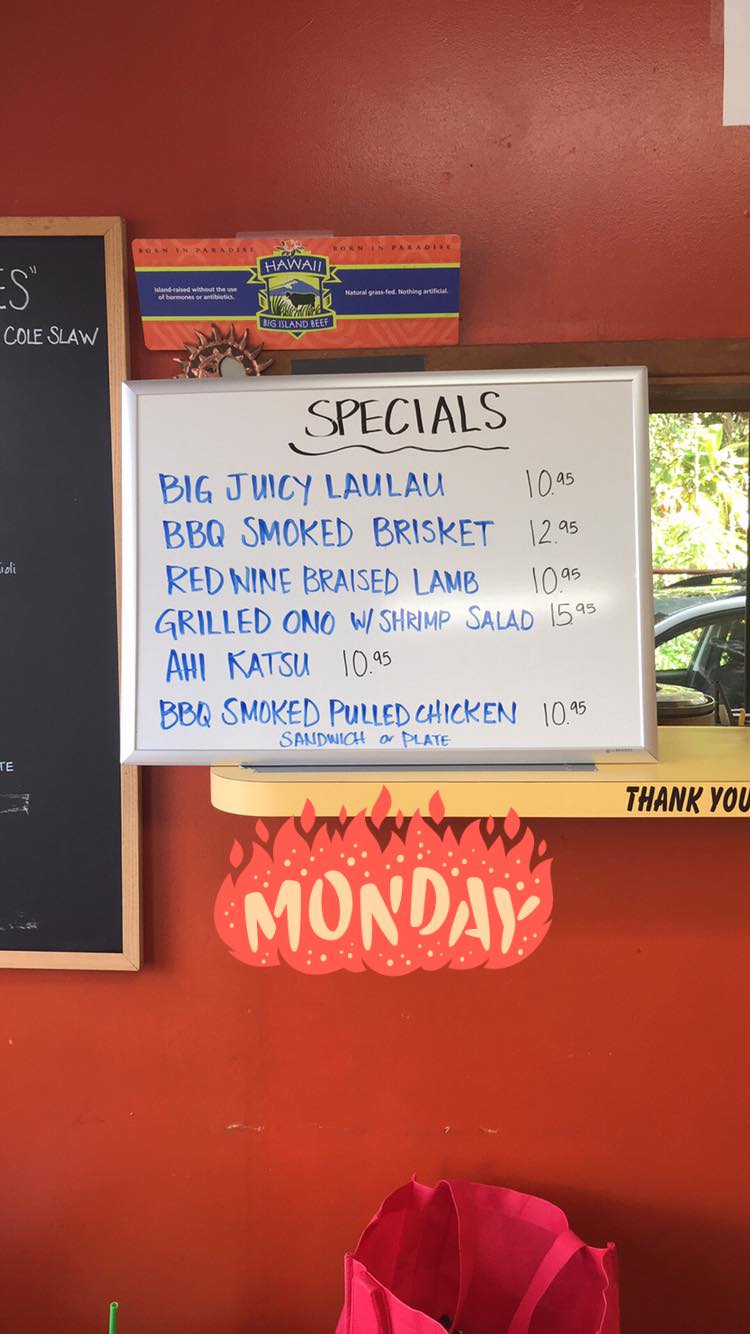 ES"
COLE SLAW
TE
BORN IN PARADISE BORN IN PARADISE
HAWAII
Island-raised without the use
of hormones or antibiotics.
Natural grass-fed. Nothing artificial.
BIG ISLAND BEEF
SPECIALS
BIG JUICY LAULAU 10.95
BBQ SMOKED BRISKET 12.95
RED WINE BRAISED LAMB 10.95
GRILLED ONO W/ SHRIMP SALAD 15.95
AHI KATSU 10.95
BBQ SMOKED PULLED CHICKEN 10.95
SANDWICH or PLATE
THANK YOU
MONDAY